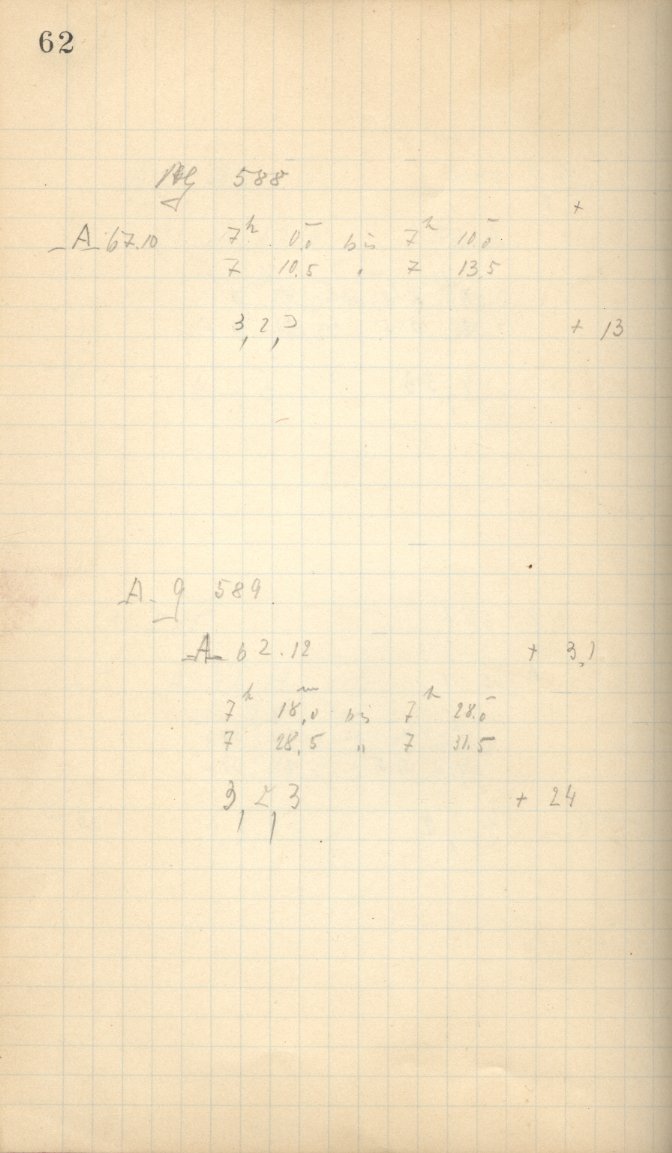 62
Ag 588
+
A 67.10 7h 0,0 bis 7h 10.0
7 10.5 " 7 13.5
3, 2, 3 + 13
A g 589
A 62.12 + 3,1
7h 18,0m bis 7h 28.0
7 28,5 " 7 31.5
3, 2, 3 + 24